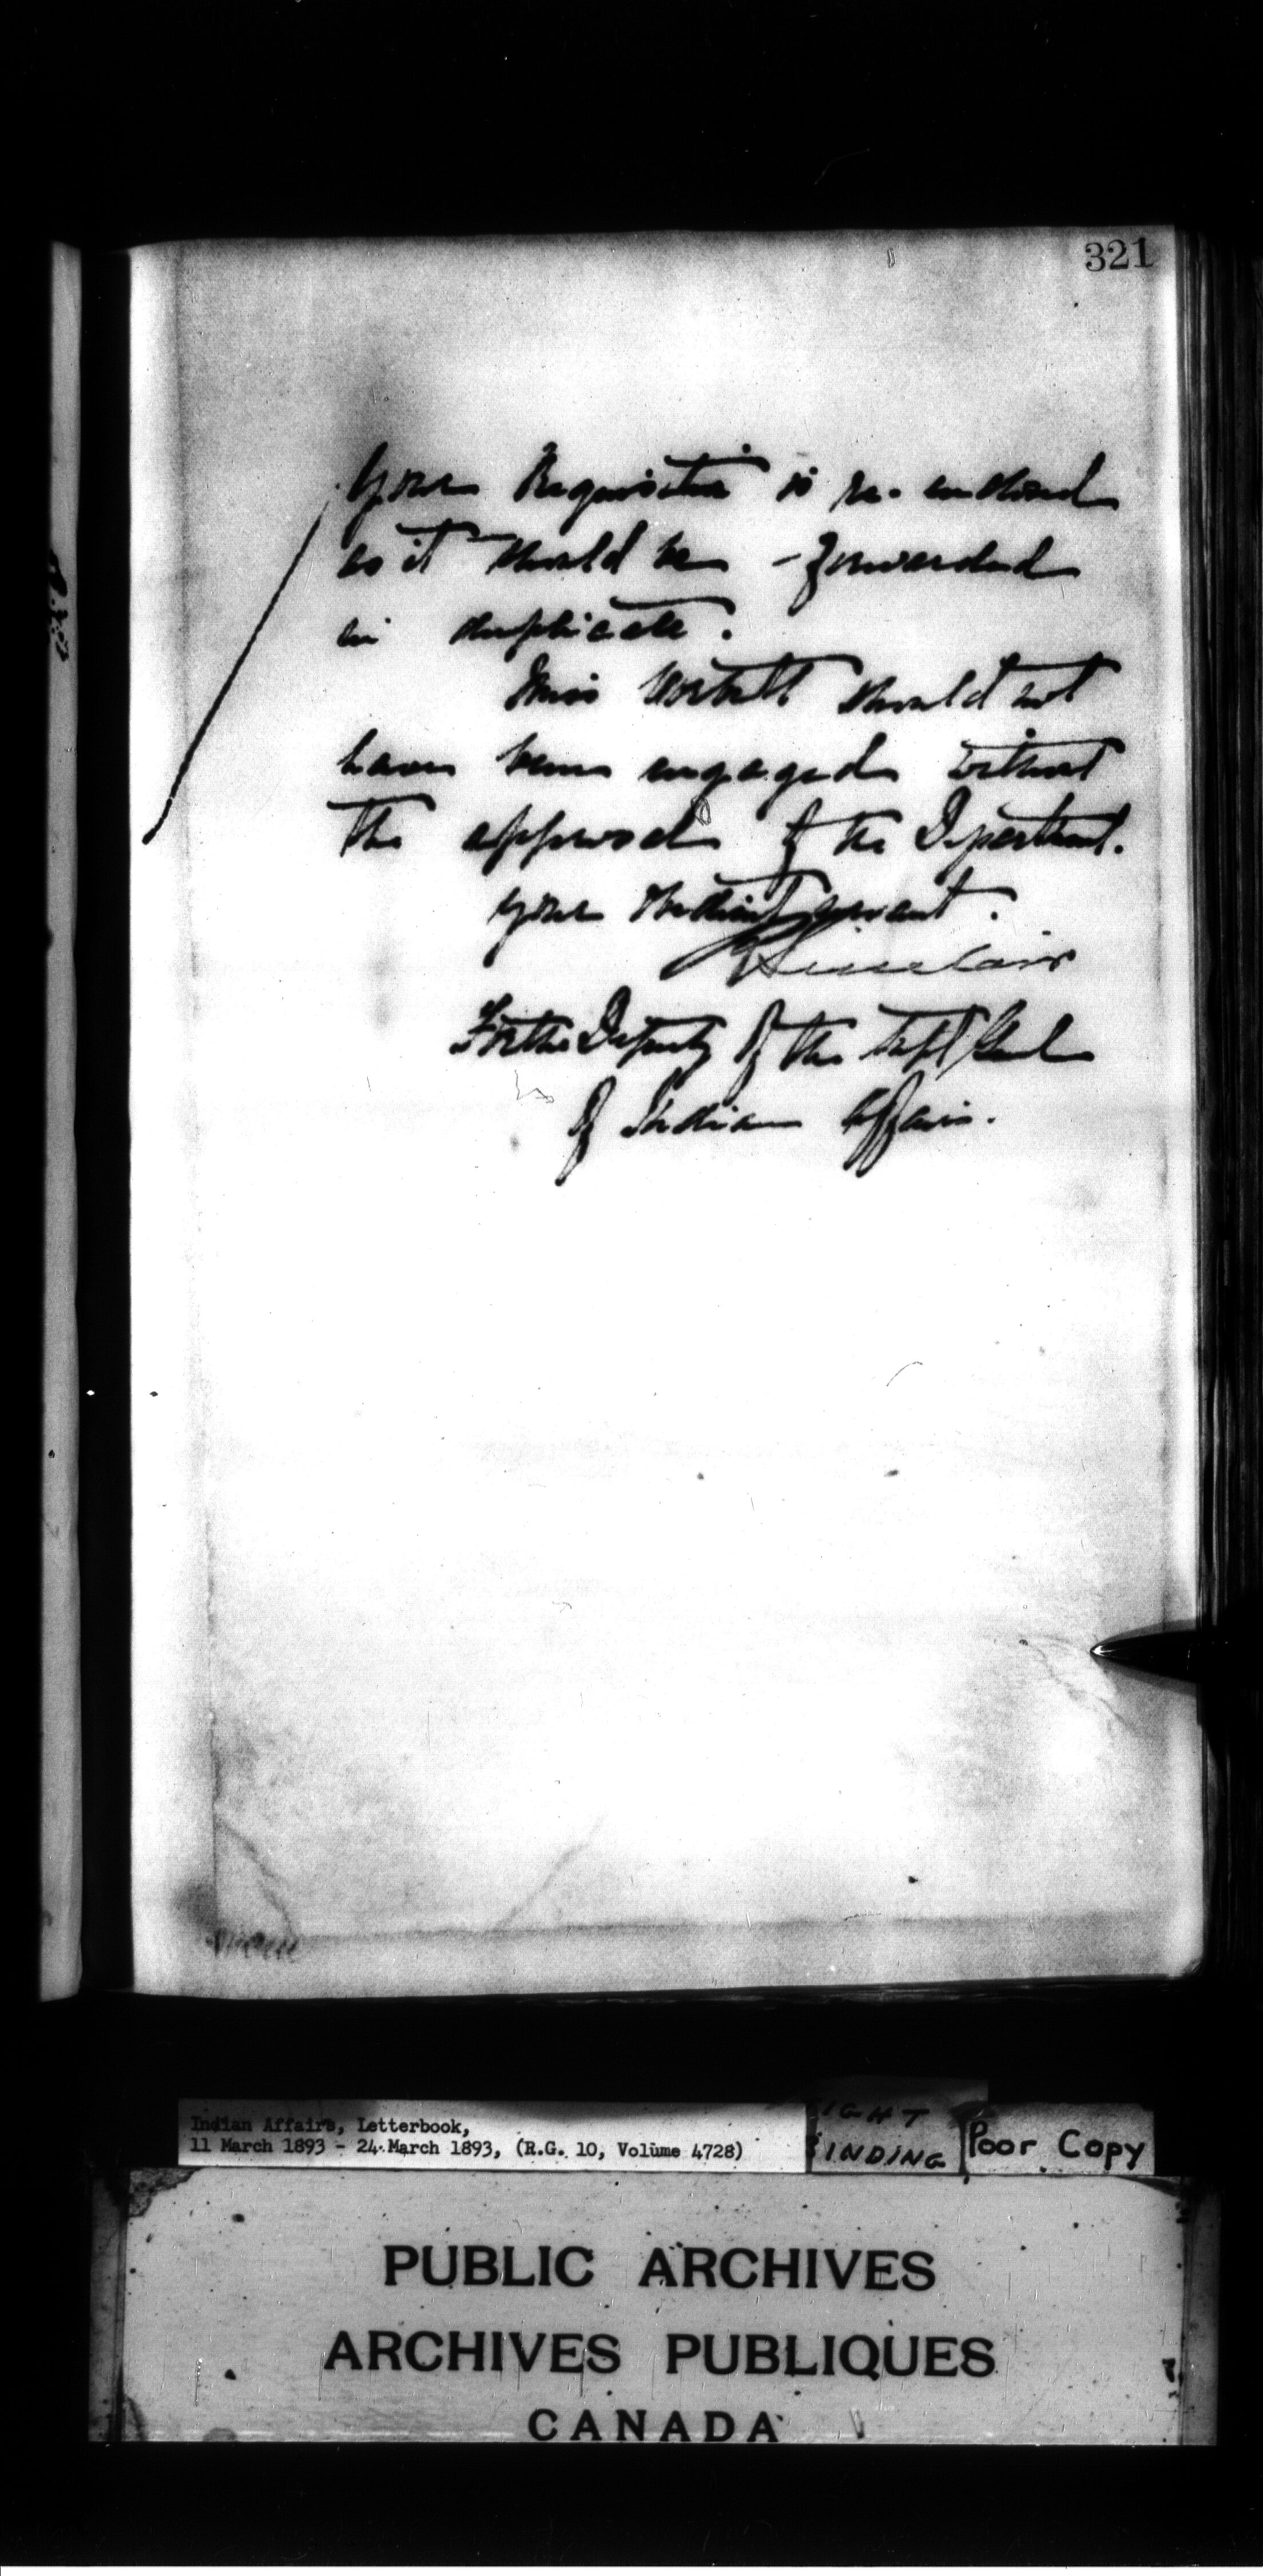 321
Your Requisition is re-enclosed
as it should be forwarded
in duplicate.
Miss should not
have been engaged without
the approval of the Department.
Your obedient servant.
Sinclair
For the Deputy of the Supt Genl
of Indian Affairs.
Indian Affairs, Letterbook,
11 March 1893 - 24 March 1893, (R.G. 10, Volume 4728)
BINDING
Poor Copy
PUBLIC ARCHIVES
ARCHIVES PUBLIQUES
CANADA